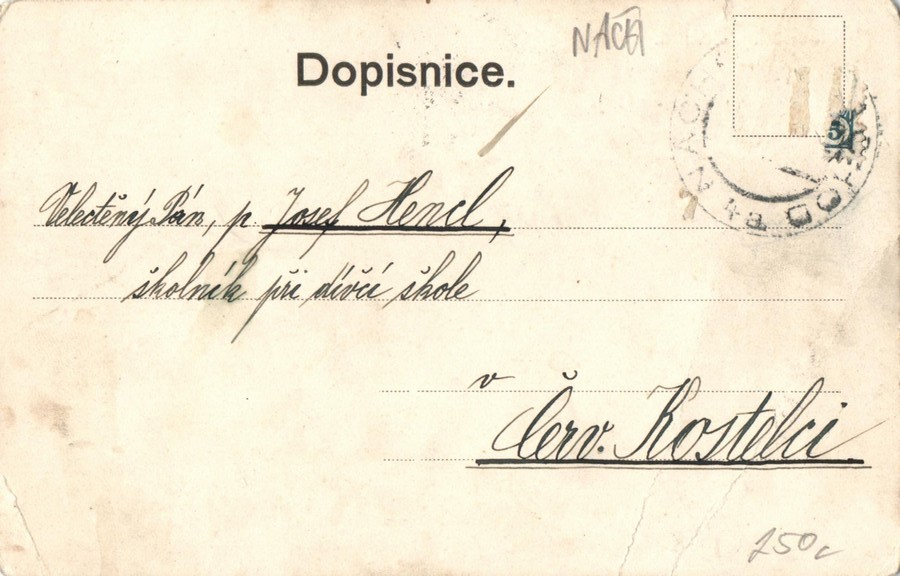 Dopisnice.
NÁCH
5
Velectěný Pán, p. Josef Hencl,
školník při dívčí škole
v
Červ. Kostelci
250,-